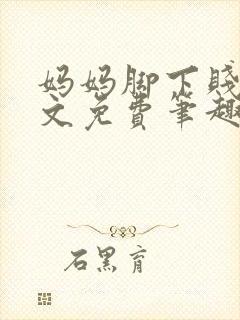 妈妈脚下贱
文免费笔趣
石黑育